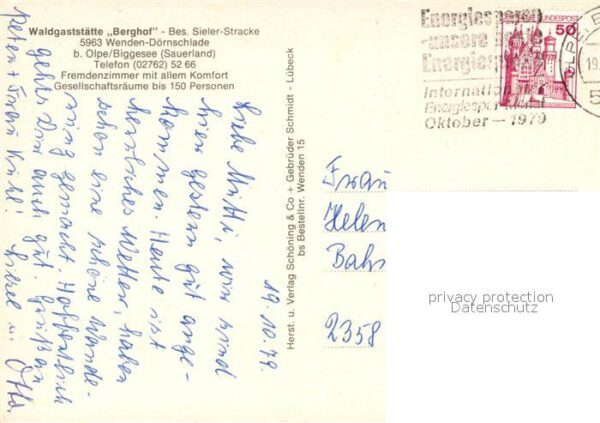 Waldgaststätte „Berghof" - Bes. Sieler-Stracke
5963 Wenden-Dörnschlade
b. Olpe/Biggesee (Sauerland)
Telefon (02762) 52 66
Fremdenzimmer mit allem Komfort
Gesellschaftsräume bis 150 Personen
19.10.79.
Liebe Mutti, wir sind
hier gestern gut ange-
kommen. Heute ist
herrliches Wetter, haben
schon eine schöne Wande-
rung gemacht. Hoffentlich
gehts Dir auch gut. Grüßen
Peter + Frau Kühl! Liesel u. Otto.
Herst. u. Verlag Schöning & Co + Gebrüder Schmidt - Lübeck
bs Bestellnr. Wenden 15
Energiesparen
-unsere beste
Energie
Internation
Energiespar
Oktober — 1979
BUNDESPOST
50
OLPE, B
19.
5
Frau
Helen
Bahn
2358
privacy protection
Datenschutz